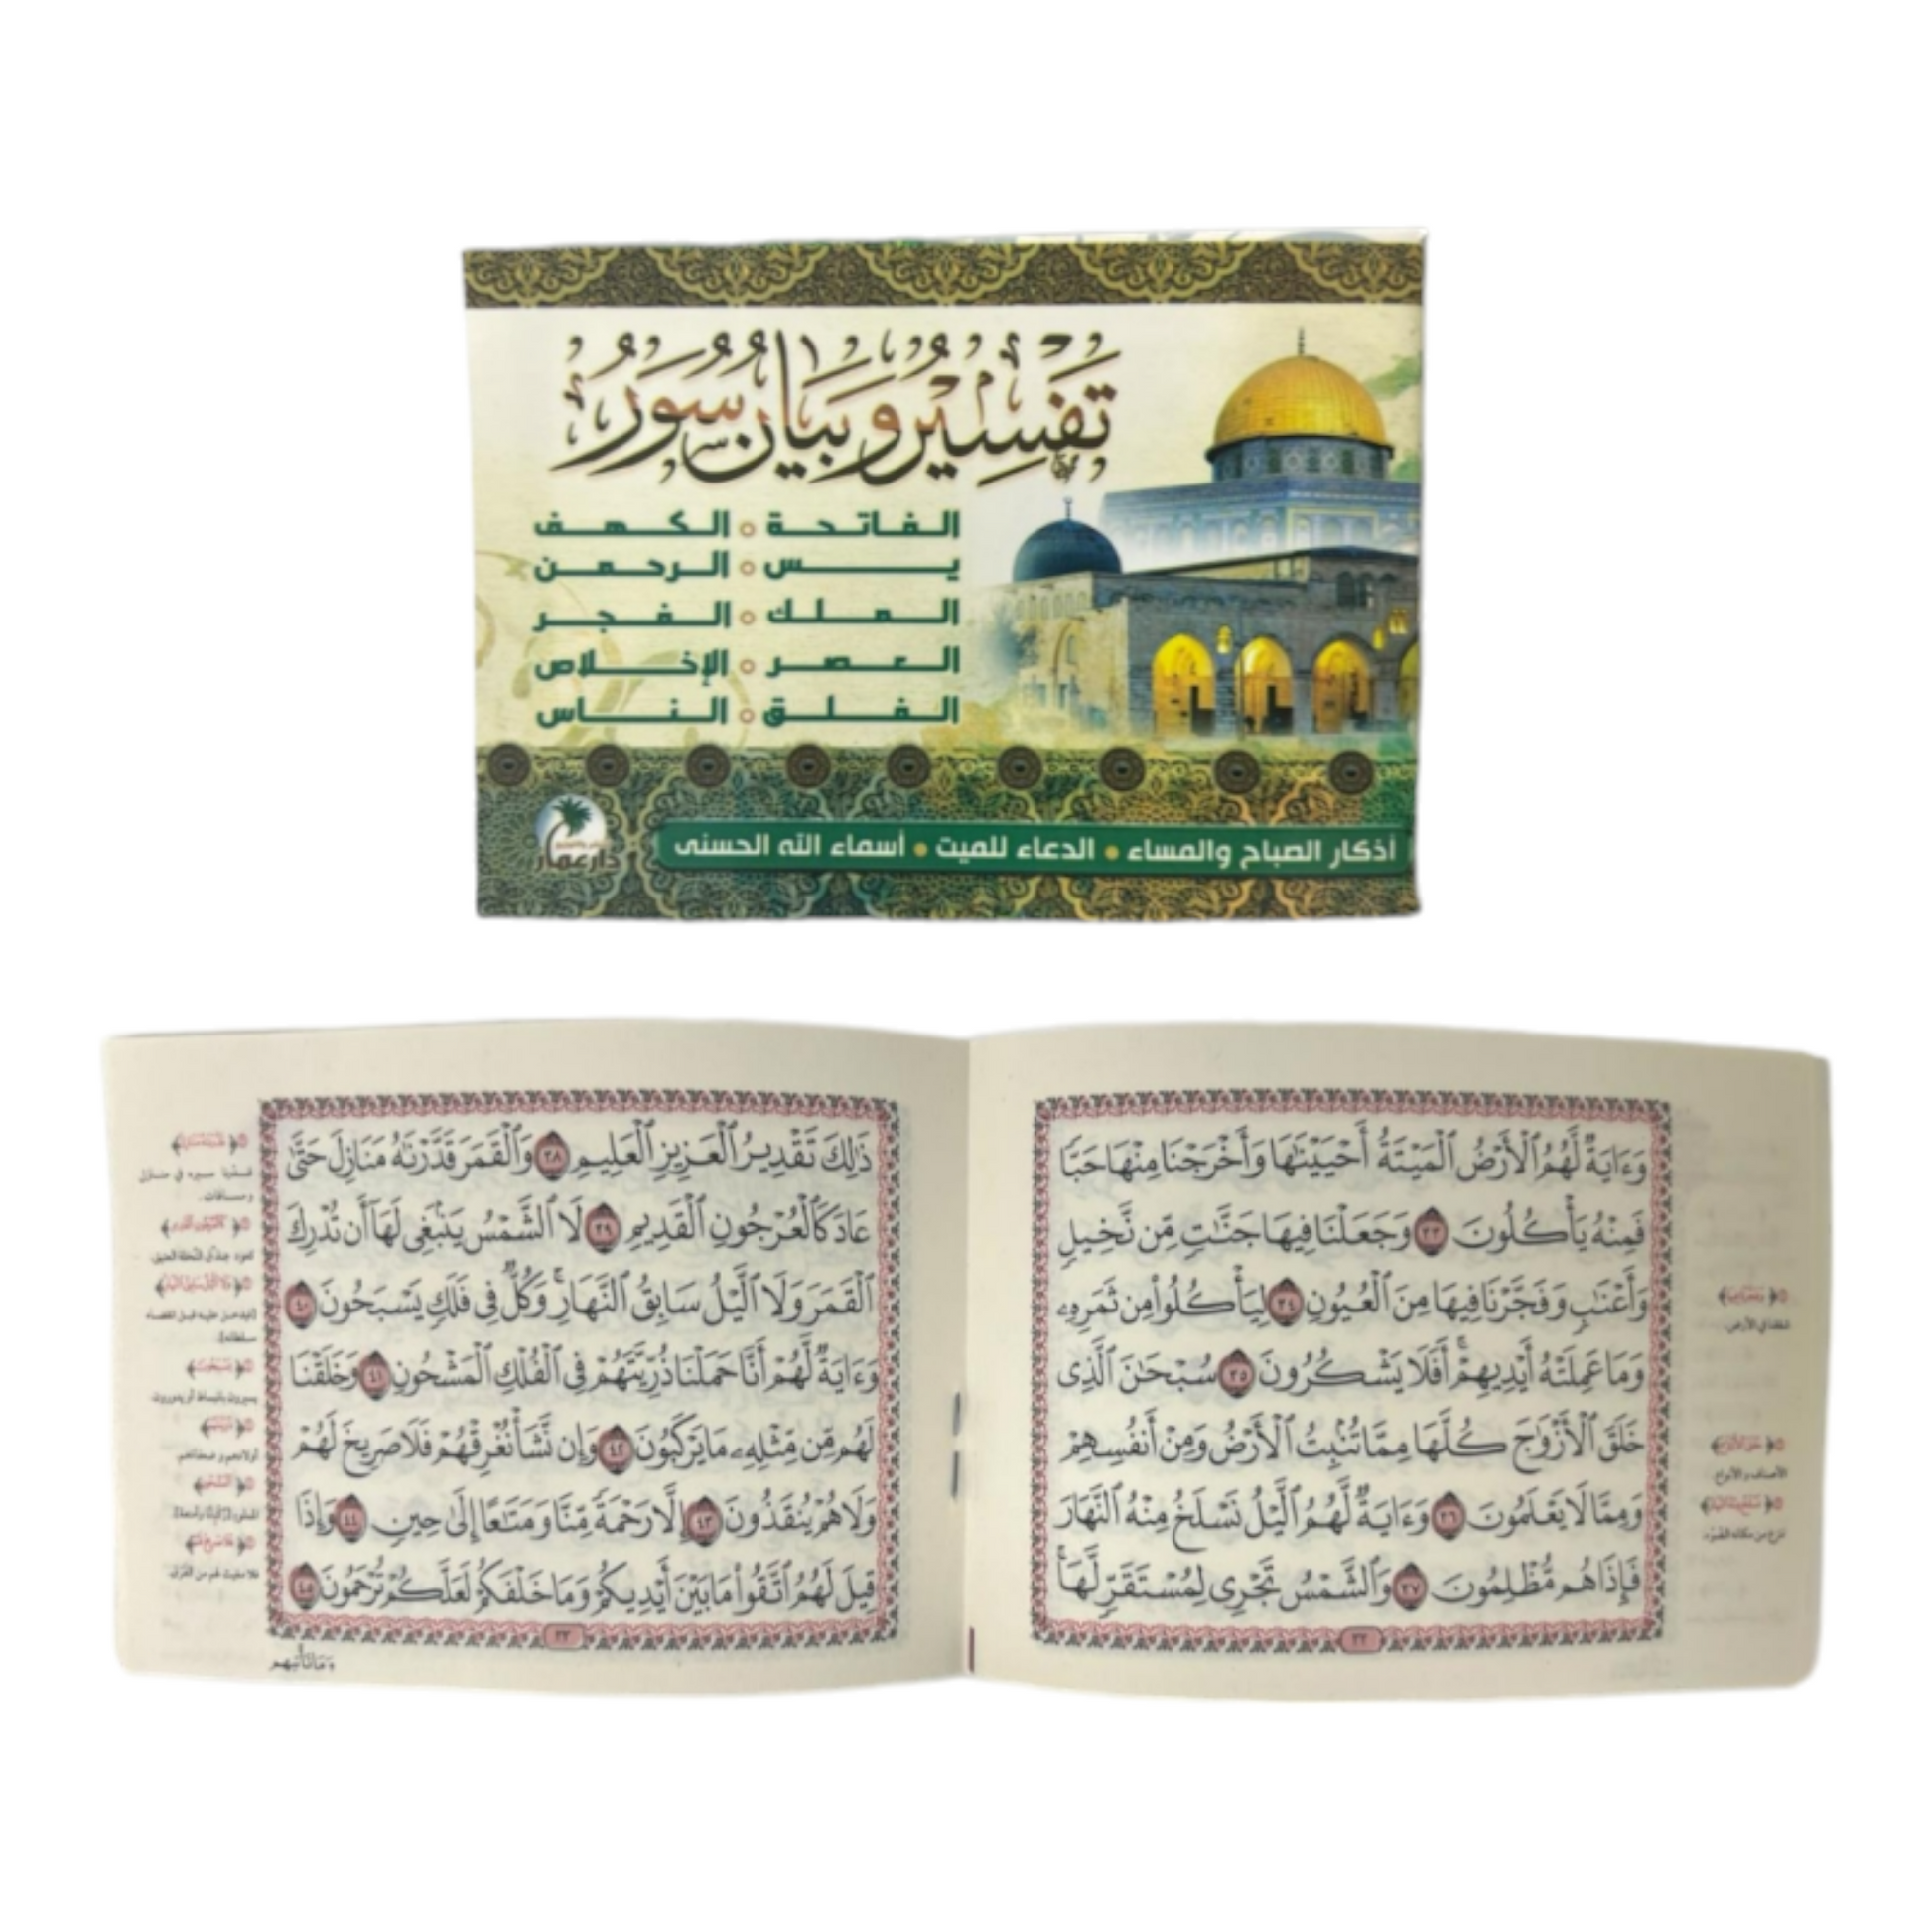 تَفْسِيرُ وَبَيَانُ سُوَرُ
الفاتحة • الكهف
يس • الرحمن
الملك • الفجر
العصر • الإخلاص
الفلق • الناس
أذكار الصباح والمساء • الدعاء للميت • أسماء الله الحسنى
دار عمار
وَءَايَةٌ لَّهُمُ ٱلْأَرْضُ ٱلْمَيْتَةُ أَحْيَيْنَٰهَا وَأَخْرَجْنَا مِنْهَا حَبًّا
فَمِنْهُ يَأْكُلُونَ ٣٣ وَجَعَلْنَا فِيهَا جَنَّٰتٍ مِّن نَّخِيلٍ
وَأَعْنَٰبٍ وَفَجَّرْنَا فِيهَا مِنَ ٱلْعُيُونِ ٣٤ لِيَأْكُلُوا۟ مِن ثَمَرِهِۦ
وَمَا عَمِلَتْهُ أَيْدِيهِمْ ۖ أَفَلَا يَشْكُرُونَ ٣٥ سُبْحَٰنَ ٱلَّذِى
خَلَقَ ٱلْأَزْوَٰجَ كُلَّهَا مِمَّا تُنۢبِتُ ٱلْأَرْضُ وَمِنْ أَنفُسِهِمْ
وَمِمَّا لَا يَعْلَمُونَ ٣٦ وَءَايَةٌ لَّهُمُ ٱلَّيْلُ نَسْلَخُ مِنْهُ ٱلنَّهَارَ
فَإِذَا هُم مُّظْلِمُونَ ٣٧ وَٱلشَّمْسُ تَجْرِى لِمُسْتَقَرٍّ لَّهَا ۚ
٢٢
شققنا في الأرض.
الأصناف والأنواع.
ننزع من مكانه الضوء.
ذَٰلِكَ تَقْدِيرُ ٱلْعَزِيزِ ٱلْعَلِيمِ ٣٨ وَٱلْقَمَرَ قَدَّرْنَٰهُ مَنَازِلَ حَتَّىٰ
عَادَ كَٱلْعُرْجُونِ ٱلْقَدِيمِ ٣٩ لَا ٱلشَّمْسُ يَنۢبَغِى لَهَآ أَن تُدْرِكَ
ٱلْقَمَرَ وَلَا ٱلَّيْلُ سَابِقُ ٱلنَّهَارِ ۚ وَكُلٌّ فِى فَلَكٍ يَسْبَحُونَ ٤٠
وَءَايَةٌ لَّهُمْ أَنَّا حَمَلْنَا ذُرِّيَّتَهُمْ فِى ٱلْفُلْكِ ٱلْمَشْحُونِ ٤١ وَخَلَقْنَا
لَهُم مِّن مِّثْلِهِۦ مَا يَرْكَبُونَ ٤٢ وَإِن نَّشَأْ نُغْرِقْهُمْ فَلَا صَرِيخَ لَهُمْ
وَلَا هُمْ يُنقَذُونَ ٤٣ إِلَّا رَحْمَةً مِّنَّا وَمَتَٰعًا إِلَىٰ حِينٍ ٤٤ وَإِذَا
قِيلَ لَهُمُ ٱتَّقُوا۟ مَا بَيْنَ أَيْدِيكُمْ وَمَا خَلْفَكُمْ لَعَلَّكُمْ تُرْحَمُونَ ٤٥
٢٣
قدرنا سيره في منازل
ومسافات.
كعود عذق النخلة العتيق.
يسيرون بانبساط أو يدورون.
أولادهم وضعفاءهم.
فلا مغيث لهم من الغرق.